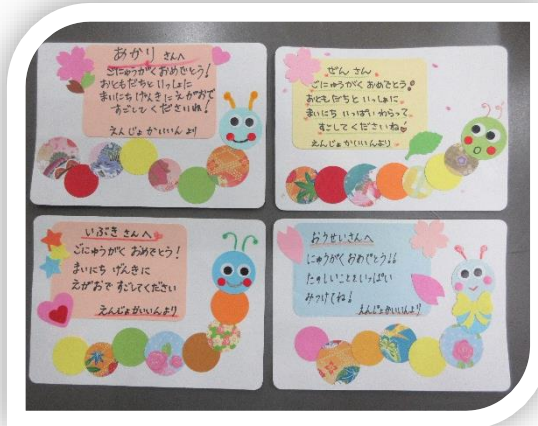 あかり さんへ
ごにゅうがく おめでとう!
おともだちと いっしょに
まいにち げんきに えがおで
すごしてくださいね!
えんじょかいいんより
ぜん さん
ごにゅうがく おめでとう
おともだちと いっしょに
まいにち いっぱい わらって
すごしてくださいね
えんじょかいいんより
いぶき さんへ
ごにゅうがく おめでとう!
まいにち げんきに
えがおで すごしてください
えんじょかいいんより
おうせいさんへ
にゅうがく おめでとう!!
たのしいことをいっぱい
みつけてね!
えんじょかいいんより